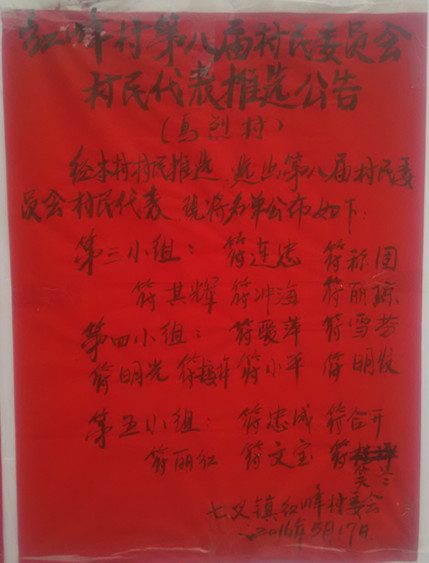 红峰村第八届村民委员会
村民代表推选公告
(马烈村)
经本村村民推选,选出第八届村民委
员会村民代表,现将名单公布如下:
第三小组: 符连忠 符称国
符其辉 符冲海 符丽琼
第四小组: 符爱萍 符雪芬
符明光 符小平 符明发
第五小组: 符忠成 符合开
符丽红 符文宝 符笑兰
七叉镇红峰村委会
2016年5月17日